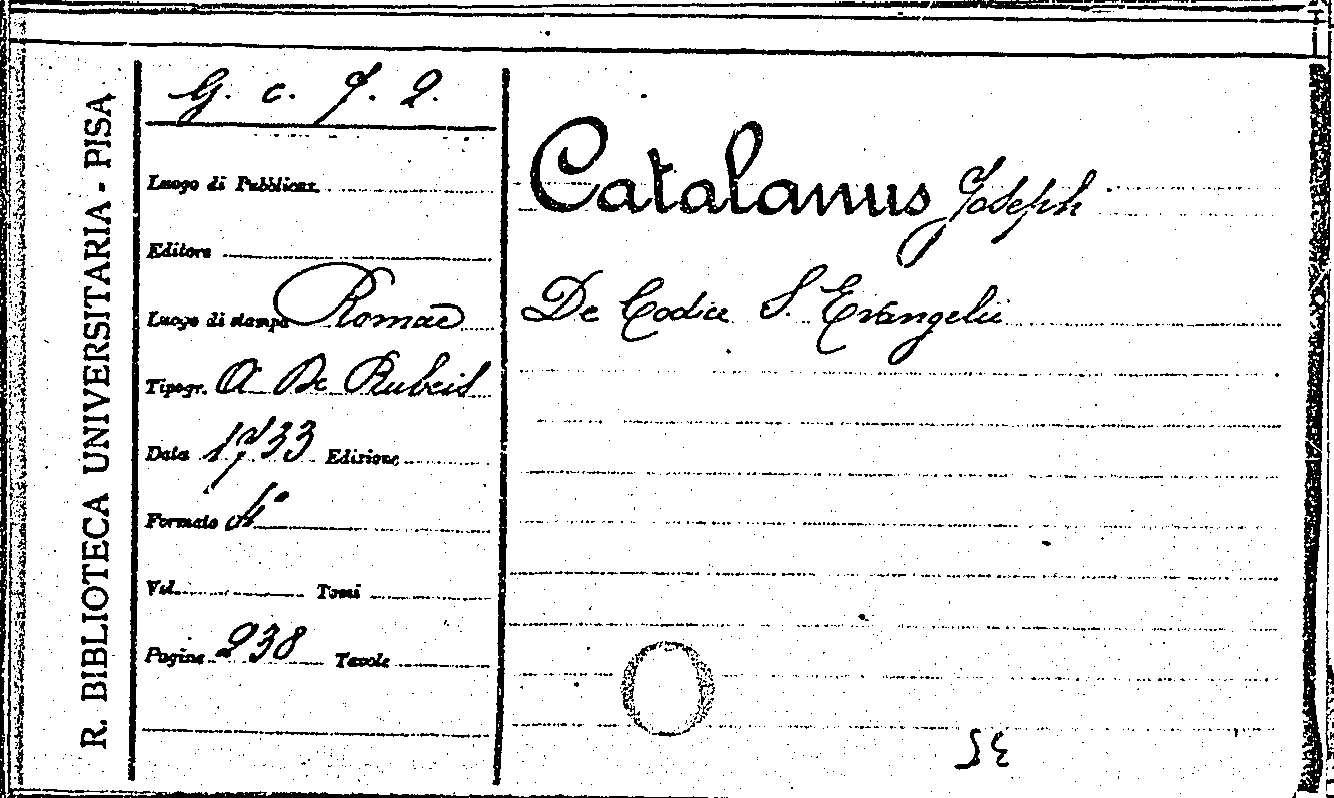 R. BIBLIOTECA UNIVERSITARIA - PISA
G. c. 7. 2.
Luogo di Pubblicaz.
Editore
Luogo di stampa Romae
Tipogr. A De Rubeis
Data 1733 Edizione
Formato 4°
Vol. Tomi
Pagine 238 Tavole
Catalanus Joseph
De Codice S. Evangelii